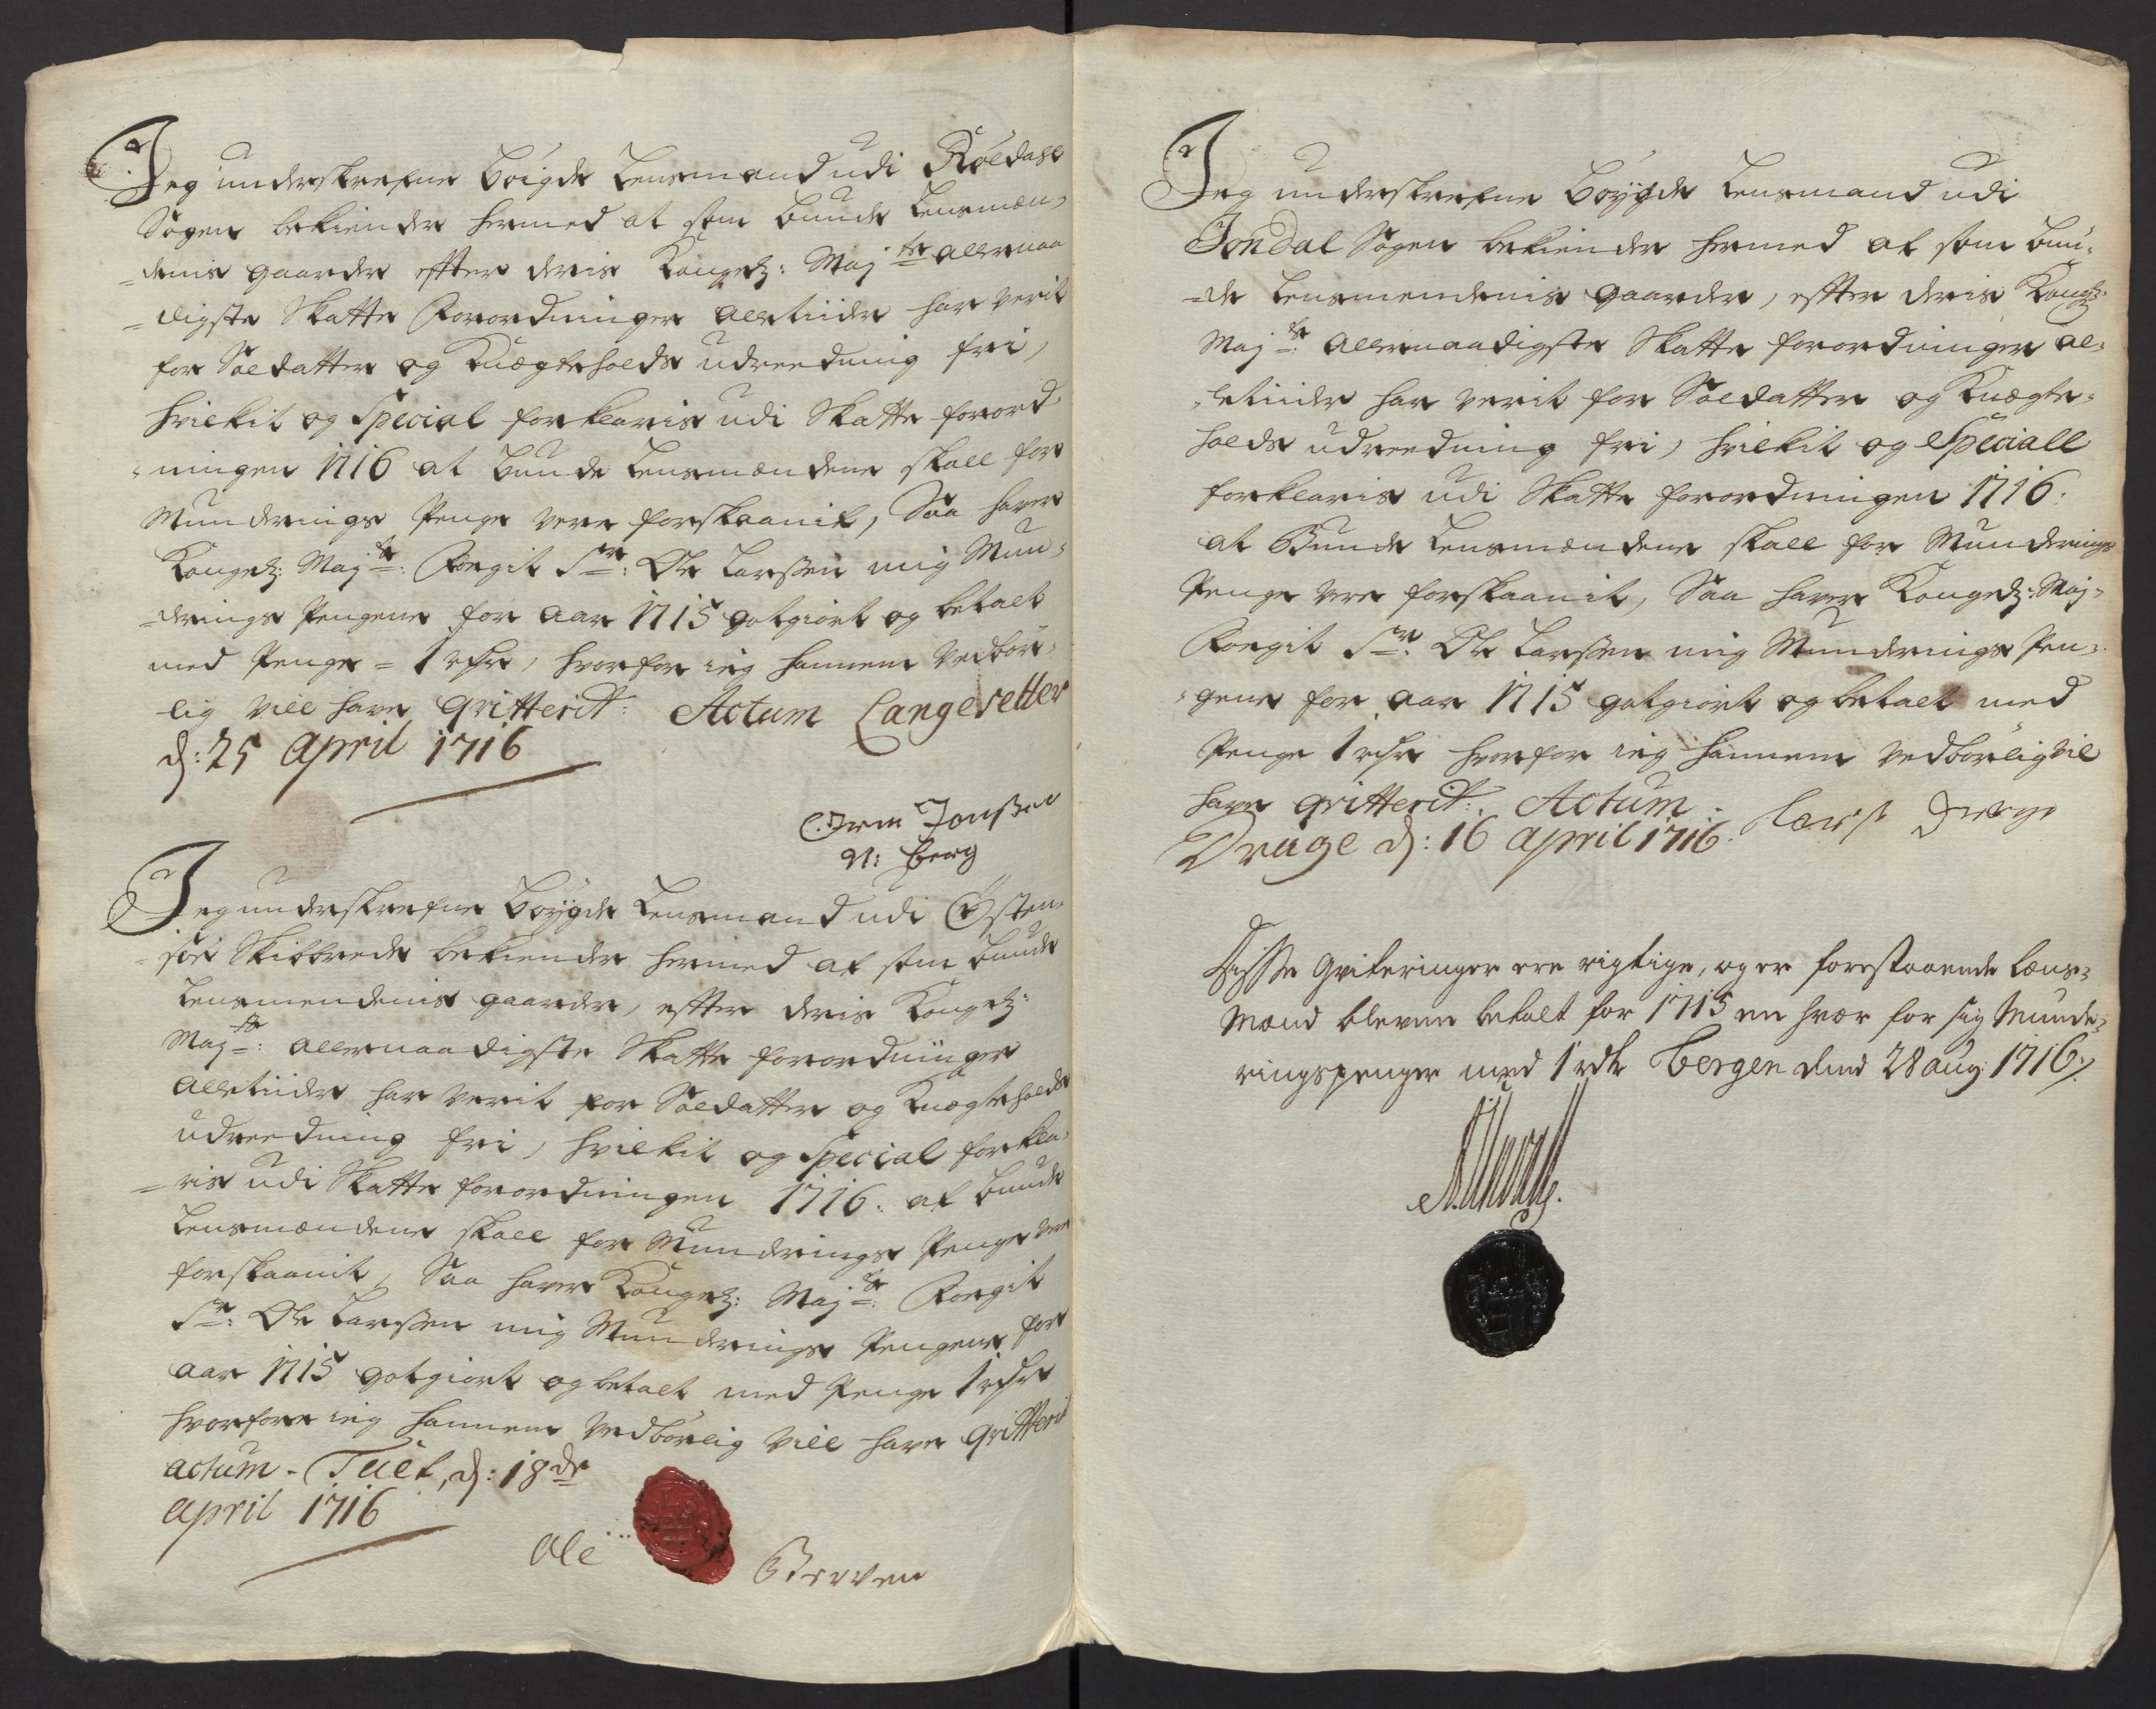 Jeg underskrefne böigde Lensmand udi Röldahl
Sogen bekiender hermed at som bunde Lensmæn,
=denis gaarder effter deris Kongel: Maj:ts allernaa
=digste Skatte Forordninger alletiider har verit
for Soldatter og Knegteholds udreedning frj,
hvilkit og Special forklaris udi Skatte forord=
=ningen 1716 at bunde Lensmændene skall for
Munderings Penge vere forskaanit, Saa haver
Kongel: Maj:ts: Foegit Sr: Ole Larssen mig Mun=
=derings Pengene for aar 1715 gotgiort og betalt
med Penge = 1 rdr, hvorfor ieg hannem vedbör=
lig vill have qvitterit: Actum Langesetter
d: 25 april 1716
Orm Jonssen
N: berg
Jeg underskrefne böygde Lensmand udi Östen=
=söe Skibbrede bekiender hermed at som bunde
Lensmendenis gaarder, effter deris Kongel:
Maj:ts: allernaadigste Skatte forordninger
alletiider har verit for Soldatter og Knegteholds
udreedning frj, hvilkit og Special forkla=
=ris udi Skatte forordningen 1716: at bunde
Lensmændene skall for Munderings Penge vere
forskaanit, Saa haver Kongel: Maj:ts: Foegit
Sr: Ole Larssen mig Munderings Pengene for
aar 1715 gotgiort og betalt med Penge 1 rdr
hvorfore ieg hannem vedbörlig vill have qvitterit
actum - Tuet, d: 18de
april 1716
Ole Berven
Jeg underskrefne böygde Lensmand udi
Jondal Sogen bekiender hermed at som bun=
=de Lensmendenis gaarder, effter deris Kongl:
Maj:ts: allernaadigste Skatte forordninger al=
=letiider har verit for Soldatter og Knegte=
holds udreedning frj, hvilkit og Speciall
forklaris udi Skatte forordningen 1716:
at Bunde Lensmændene skall for Munderings
Penge vere forskaanit, Saa haver Kongel: Maj=
Foegit Sr: Ole Larssen mig Munderings Pen=
=gene for aar 1715 gotgiort og betalt med
Penge 1 rdr hvorfor ieg hannem vedbörlig vil
have qvitterit: Actum
Drage d: 16 april 1716. Lars Drage
Disse qviteringer ere rigtige, og er forestaaende læns=
mænd bleven betalt for 1715 en hver for sig Munde=
ringspenger med 1 rdr Bergen dend 28 aug: 1716